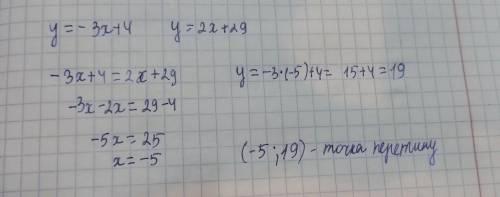 y = -3x+4   y = 2x+29
-3x+4 = 2x+29   y = -3·(-5)+4 = 15+4 = 19
-3x-2x = 29-4
-5x = 25
x = -5   (-5 ; 19) - точка перетину